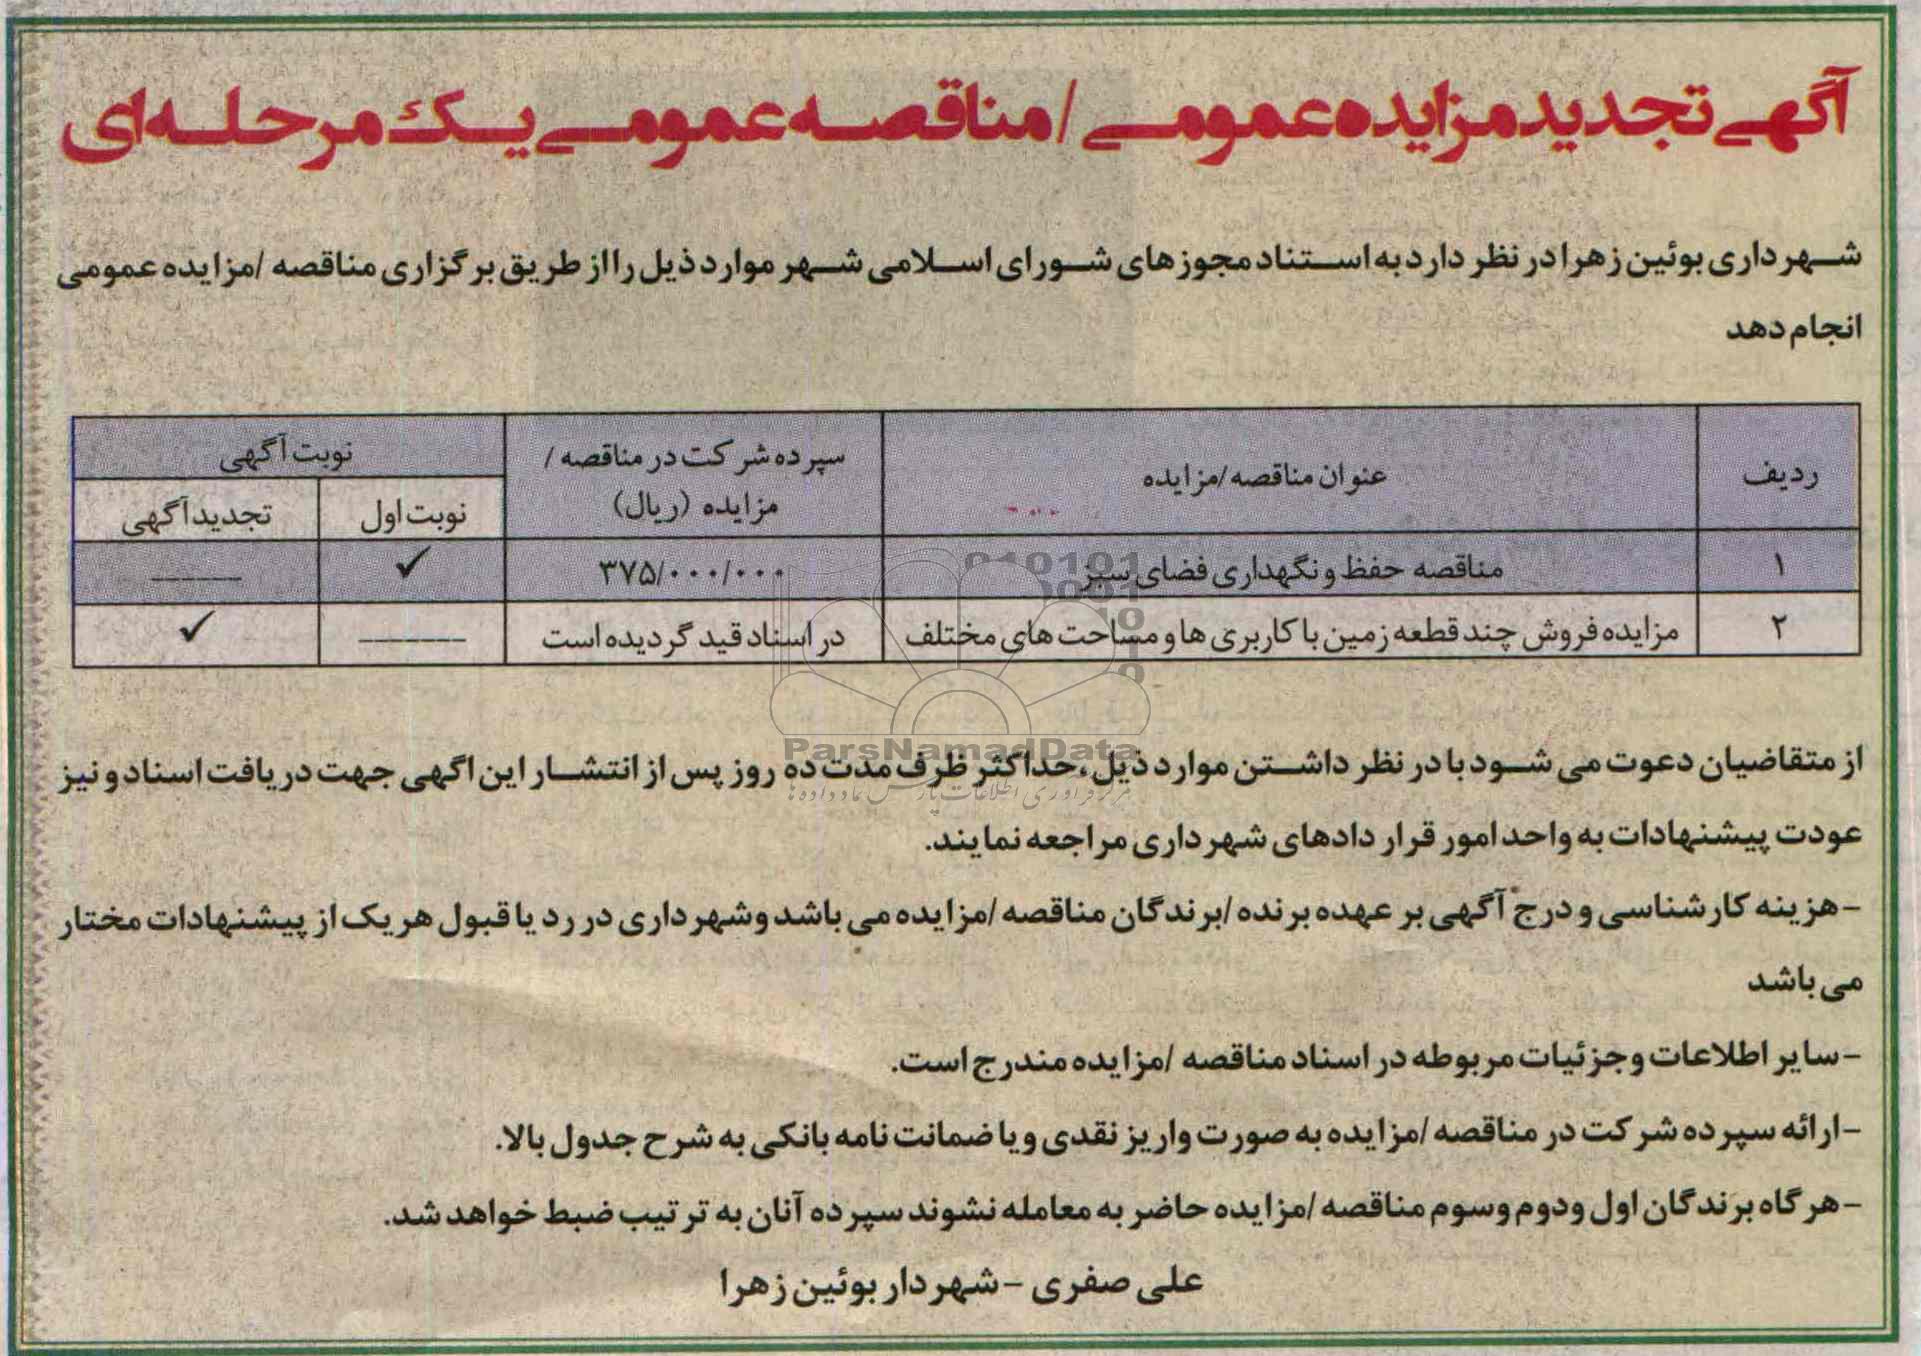 آگهی تجدید مزایده عمومی / مناقصه عمومی یک مرحله‌ای
شهرداری بوئین زهرا در نظر دارد به استناد مجوزهای شورای اسلامی شهر موارد ذیل را از طریق برگزاری مناقصه /مزایده عمومی
انجام دهد
ردیف	عنوان مناقصه/مزایده	سپرده شرکت در مناقصه / مزایده (ریال)	نوبت آگهی
نوبت اول	تجدید آگهی
۱	مناقصه حفظ و نگهداری فضای سبز	۳۷۵/۰۰۰/۰۰۰	✓	ـــــــ
۲	مزایده فروش چند قطعه زمین با کاربری ها و مساحت های مختلف	در اسناد قید گردیده است	ـــــــ	✓
010101
0001
10
1
0
ParsNamadData
مرکز فرآوری اطلاعات پارس نماد داده ها
از متقاضیان دعوت می شود با در نظر داشتن موارد ذیل،حداکثر ظرف مدت ده روز پس از انتشار این اگهی جهت دریافت اسناد و نیز
عودت پیشنهادات به واحد امور قرار دادهای شهرداری مراجعه نمایند.
-هزینه کارشناسی و درج آگهی بر عهده برنده /برندگان مناقصه /مزایده می باشد وشهرداری در رد یا قبول هر یک از پیشنهادات مختار
می باشد
-سایر اطلاعات وجزئیات مربوطه در اسناد مناقصه /مزایده مندرج است.
-ارائه سپرده شرکت در مناقصه /مزایده به صورت واریز نقدی ویا ضمانت نامه بانکی به شرح جدول بالا.
-هر گاه برندگان اول ودوم وسوم مناقصه /مزایده حاضر به معامله نشوند سپرده آنان به ترتیب ضبط خواهد شد.
علی صفری -شهردار بوئین زهرا